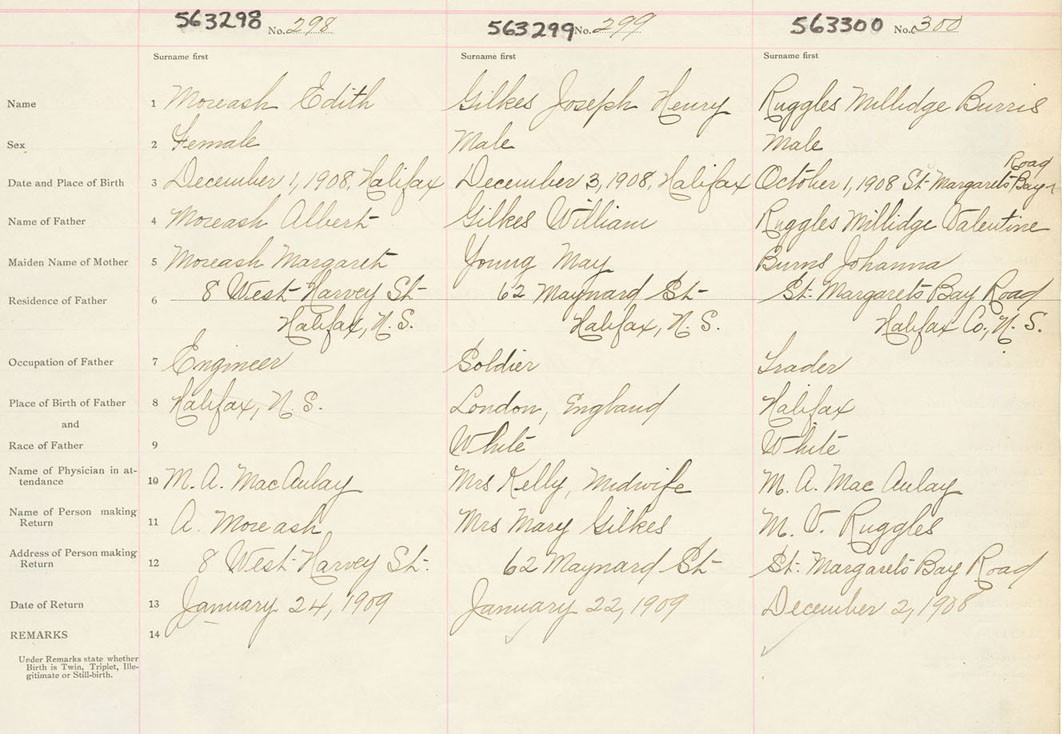 563298 No. 298 563299 No. 299 563300 No. 300
Surname first Surname first Surname first
Name 1 Moreash Edith Gilkes Joseph Henry Ruggles Millidge Burris
Sex 2 Female Male Male
Road
Date and Place of Birth 3 December 1, 1908, Halifax December 3, 1908, Halifax October 1, 1908 St. Margarets Bay
Name of Father 4 Moreash Albert Gilkes William Ruggles Millidge Valentine
Maiden Name of Mother 5 Moreash Margaret Young May Burns Johanna
Residence of Father 6 8 West Harvey St 62 Maynard St St. Margarets Bay Road
Halifax, N. S. Halifax, N. S. Halifax Co., N. S.
Occupation of Father 7 Engineer Soldier Trader
Place of Birth of Father 8 Halifax, N. S. London, England Halifax
and
Race of Father 9 White White
Name of Physician in at-
tendance 10 M. A. MacAulay Mrs Kelly, Midwife M. A. Mac Aulay
Name of Person making
Return 11 A. Moreash Mrs Mary Gilkes M. V. Ruggles
Address of Person making
Return 12 8 West Harvey St. 62 Maynard St St. Margarets Bay Road
Date of Return 13 January 24, 1909 January 22, 1909 December 2, 1908
REMARKS 14
Under Remarks state whether
Birth is Twin, Triplet, Ille-
gitimate or Still-birth.